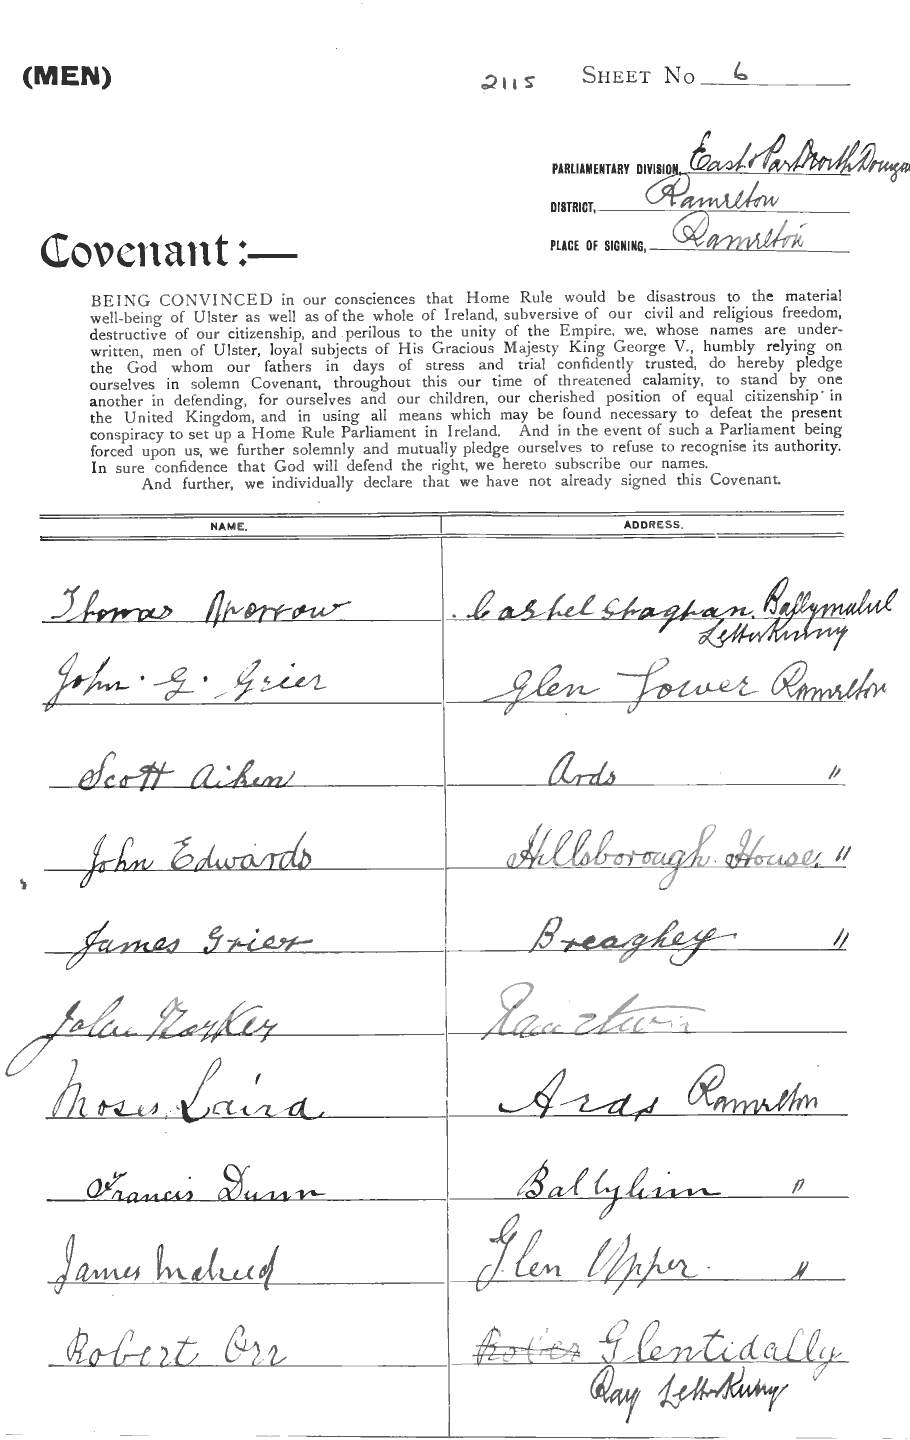 (MEN)
2115 SHEET No 6
PARLIAMENTARY DIVISION, East & Part North Donegal
DISTRICT, Ramelton
PLACE OF SIGNING, Ramelton
Covenant:—
BEING CONVINCED in our consciences that Home Rule would be disastrous to the material
well-being of Ulster as well as of the whole of Ireland, subversive of our civil and religious freedom,
destructive of our citizenship, and perilous to the unity of the Empire, we, whose names are under-
written, men of Ulster, loyal subjects of His Gracious Majesty King George V., humbly relying on
the God whom our fathers in days of stress and trial confidently trusted, do hereby pledge
ourselves in solemn Covenant, throughout this our time of threatened calamity, to stand by one
another in defending, for ourselves and our children, our cherished position of equal citizenship in
the United Kingdom, and in using all means which may be found necessary to defeat the present
conspiracy to set up a Home Rule Parliament in Ireland. And in the event of such a Parliament being
forced upon us, we further solemnly and mutually pledge ourselves to refuse to recognise its authority.
In sure confidence that God will defend the right, we hereto subscribe our names.
And further, we individually declare that we have not already signed this Covenant.
NAME. ADDRESS.
Thomas Morrow Cashel Shaghan. Ballymaleel
Letterkenny
John. G. Grier Glen Lower Ramelton
Scott Aiken Ards "
John Edwards Hillsborough House, "
James Grier Breaghey "
John
Moses Laird Ards Ramelton
Francis Dunn Ballylinn "
James Glen Upper. "
Robert Orr Glentidally
Ray Letterkenny